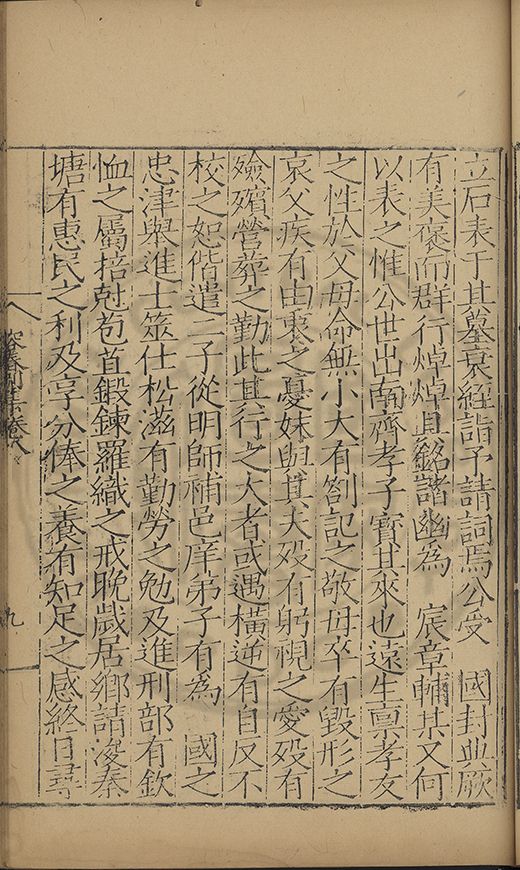 立石表于其墓衰絰詣予請詞焉公受　國封典厥
有美褒而群行焯焯且銘諸幽為　宸章輔某又何
以表之惟公世出南齊孝子寶其來也遠生禀孝友
之性於父母命無小大有劄記之敬母卒有毀形之
哀父疾有由衷之憂妹與其夫歿有躬視之愛歿有
殮殯營葬之勤此其行之大者或遇橫逆有自反不
校之恕偕遣二子從明師補邑庠弟子有為　國之
忠津舉進士筮仕松滋有勤勞之勉及進刑部有欽
恤之屬掊尅苞苴鍛鍊羅織之戒晚歲居鄉請浚秦
塘有惠民之利及享分俸之養有知足之感終日尋
容春間集卷八
九